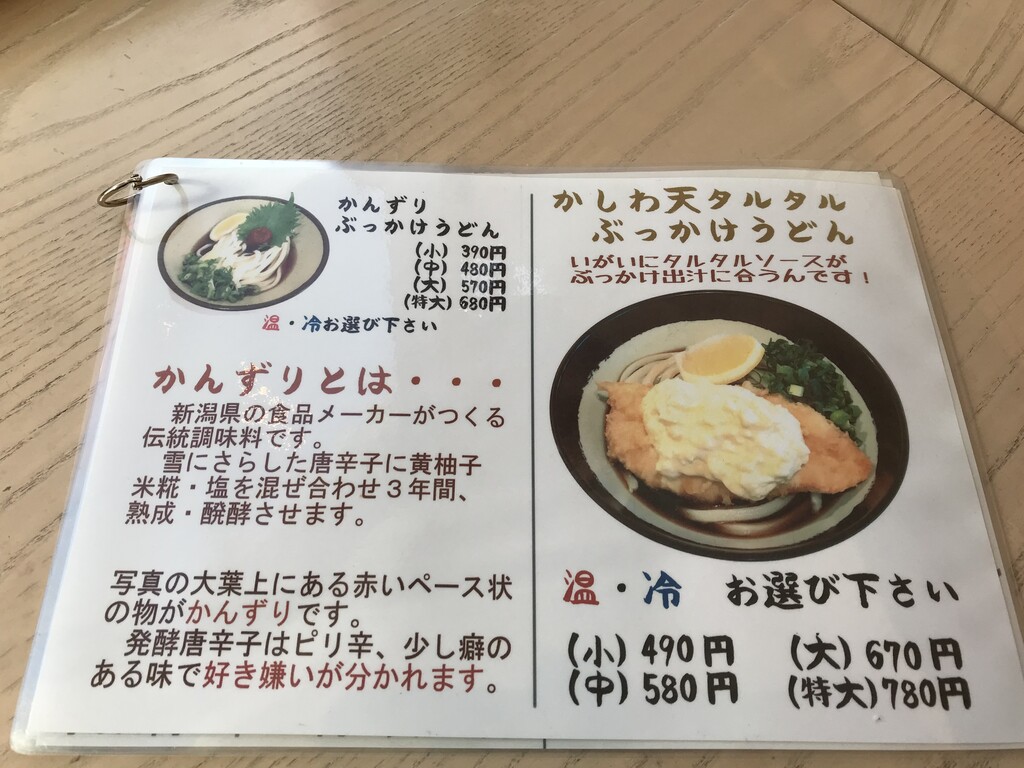 かんずり
ぶっかけうどん
(小) 390円
(中) 480円
(大) 570円
(特大) 680円
温・冷お選び下さい
かんずりとは・・・
新潟県の食品メーカーがつくる
伝統調味料です。
雪にさらした唐辛子に黄柚子
米糀・塩を混ぜ合わせ３年間、
熟成・醗酵させます。
写真の大葉上にある赤いペースト状
の物がかんずりです。
発酵唐辛子はピリ辛、少し癖の
ある味で好き嫌いが分かれます。
かしわ天タルタル
ぶっかけうどん
いがいにタルタルソースが
ぶっかけ出汁に合うんです！
温・冷 お選び下さい
(小) 490円 (大) 670円
(中) 580円 (特大)780円